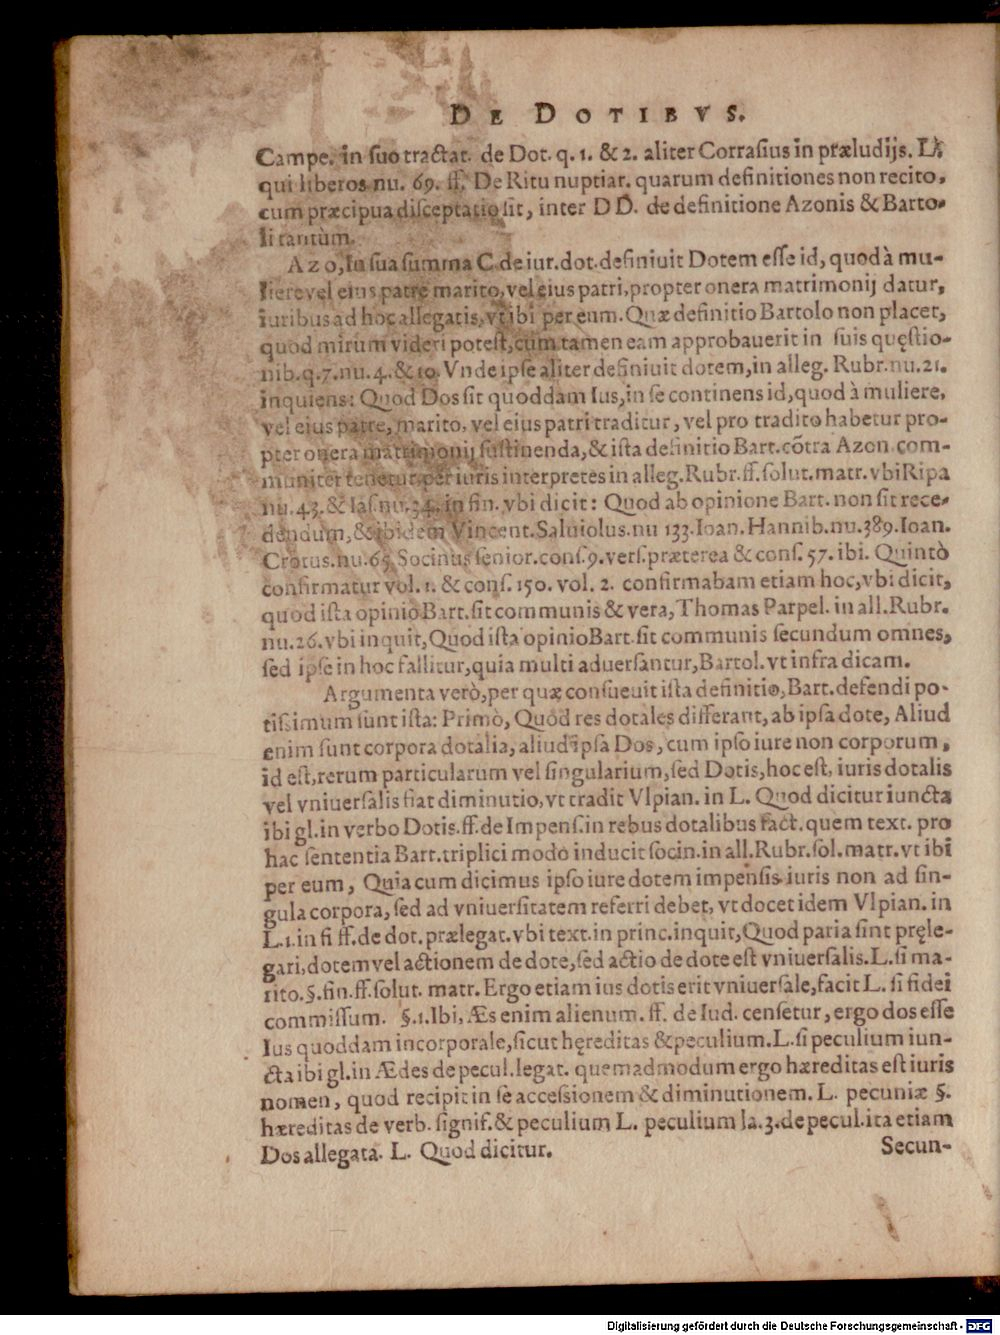 DE DOTIBVS.
Campe. in suo tractat. de Dot. q. 1. & 2. aliter Corrasius in præludijs. L.
qui liberos nu. 69. ff. De Ritu nuptiar. quarum definitiones non recito,
cum præcipua disceptatio sit, inter DD. de definitione Azonis & Barto-
li tantùm.
Azo, In sua summa C. de iur. dot. definiuit Dotem esse id, quod à mu-
liere vel eius patre marito, vel eius patri, propter onera matrimonij datur,
iuribus ad hoc allegatis, vt ibi per eum. Quæ definitio Bartolo non placet,
quod mirum videri potest, cum tamen eam approbauerit in suis quęstio-
nib. q. 7. nu. 4. & 10. Vnde ipse aliter definiuit dotem, in alleg. Rubr. nu. 21.
inquiens: Quod Dos sit quoddam Ius, in se continens id, quod à muliere,
vel eius patre, marito, vel eius patri traditur, vel pro tradito habetur pro-
pter onera matrimonij sustinenda, & ista definitio Bart. cõtra Azon. com-
muniter tenetur, per iuris interpretes in alleg. Rubr. ff. solut. matr. vbi Ripa
nu. 43. & Ias. nu. 34. in fin. vbi dicit: Quod ab opinione Bart. non sit rece-
dendum, & ibidem Vincent. Saluiolus. nu 133. Ioan. Hannib. nu. 389. Ioan.
Crotus. nu. 65. Socinus senior. cons. 9. vers. præterea & cons. 57. ibi. Quintò
confirmatur vol. 1. & cons. 150. vol. 2. confirmabam etiam hoc, vbi dicit,
quod ista opinio Bart. sit communis & vera, Thomas Parpel. in all. Rubr.
nu. 26. vbi inquit, Quod ista opinio Bart. sit communis secundum omnes,
sed ipse in hoc fallitur, quia multi aduersantur, Bartol. vt infra dicam.
Argumenta verò, per quæ consueuit ista definitio, Bart. defendi po-
tissimum sunt ista: Primò, Quòd res dotales differant, ab ipsa dote, Aliud
enim sunt corpora dotalia, aliud ipsa Dos, cum ipso iure non corporum,
id est, rerum particularum vel singularium, sed Dotis, hoc est, iuris dotalis
vel vniuersalis fiat diminutio, vt tradit Vlpian. in L. Quod dicitur iuncta
ibi gl. in verbo Dotis. ff. de Impens. in rebus dotalibus fact. quem text. pro
hac sententia Bart. triplici modo inducit socin. in all. Rubr. sol. matr. vt ibi
per eum, Quia cum dicimus ipso iure dotem impensis iuris non ad sin-
gula corpora, sed ad vniuersitatem referri debet, vt docet idem Vlpian. in
L. 1. in fi ff. de dot. prælegat. vbi text. in princ. inquit, Quod paria sint pręle-
gari, dotem vel actionem de dote, sed actio de dote est vniuersalis. L. si ma-
rito. §. fin. ff. solut. matr. Ergo etiam ius dotis erit vniuersale, facit L. si fidei
commissum. §. 1. Ibi, Æs enim alienum. ff. de Iud. censetur, ergo dos esse
Ius quoddam incorporale, sicut hęreditas & peculium. L. si peculium iun-
cta ibi gl. in Ædes de pecul. legat. quemadmodum ergo hæreditas est iuris
nomen, quod recipit in se accessionem & diminutionem. L. pecuniæ §.
hæreditas de verb. signif. & peculium L. peculium la. 3. de pecul. ita etiam
Dos allegata. L. Quod dicitur.
Secun-
Digitalisierung gefördert durch die Deutsche Forschungsgemeinschaft - DFG